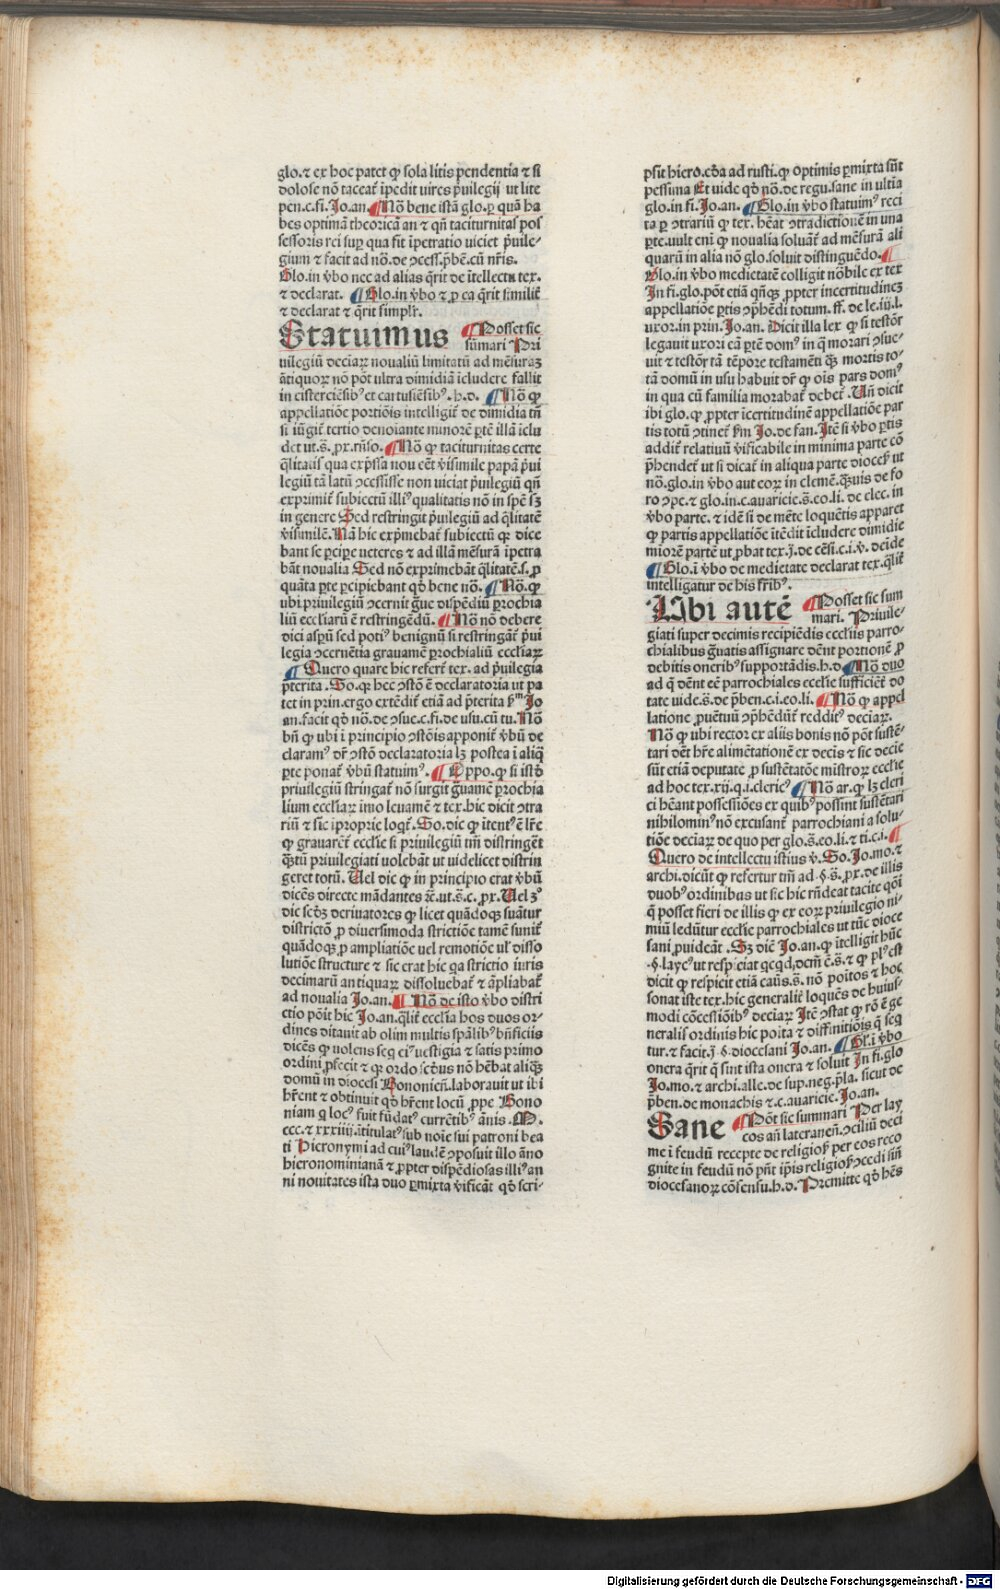 glo. ⁊ ex hoc patet ꝙ sola litis p̄endentia ⁊ si
dolose nō taceat̄ īpedit vires p̄uilegij ut lite
pen. c. fi. Jo. an. ¶ Nō bene istā glo. ꝑ quā ha
bes optimā theoricā an ⁊ qn̄ taciturnitas pos
sessoris rei sup̲ qua fit īpetratio viciet p̄uile⸗
gium ⁊ facit ad nō. de ꝯcess. p̄bē. cū nr̄is.
Glo. in v̄bo nec ad alias q̄rit de ītellectu tex.
⁊ declarat. ¶ Glo. in v̄bo ⁊ ꝓ ea q̄rit similit̄
⁊ declarat ⁊ q̄rit simplr̄.
Statuimus ¶ Posset sic
sūmari Pri
uilegiū deciaꝝ noualiū limitatū ad mēsuraꝫ
ātiquoꝝ nō pōt ultra dimidiā īcludere fallit
in cisterciēsibꝰ et cartusiēsibꝰ. h. d. ¶ Nō ꝙ
appellatiōe portiōis intelligit̄ de dimidia tn̄
si iūgit̄ tertio denotante minorē ꝑtē illā iclu
det ut. s̄. ꝓx. rn̄so. ¶ Nō ꝙ taciturnitas certe
q̄litatis qua exp̄ssa nou eēt v̄isimile papā p̄ui
legiū tā latū ꝯcessisse non viciat p̄uilegiū qn̄
exprimit̄ subiectū illiꝰ qualitatis nō in spē sꝫ
in genere Sed restringit p̄uilegiū ad q̄litatē
v̄isimilē. Nā hic exp̄mebat̄ subiectū q̄ dice
bant se ꝑcipe ueteres ⁊ ad illā mēsurā īpetra
bāt noualia Sed nō exprimebāt q̄litatē. s. ꝓ
quāta ꝑte ꝑcipiebant qd̄ bene nō. ¶ Nō. ꝙ
ubi priuilegiū ꝯcernit ḡue dispēdiū ꝑrochia
liū eccliarū ē restringēdū. ¶ Nō nō debere
dici asp̲ū sed potiꝰ benignū si restringāt̄ p̄ui
legia ꝯcernētia grauamē ꝑrochialiū eccliaꝝ
¶ Quero quare hic refert̄ tex. ad p̄uilegia
p̄terita. So. ꝙ hec ꝯstō ē declaratoria ut pa
tet in prin. ergo extēdit̄ etiā ad p̄terita ẜm Jo
an. facit qd̄ nō. de ꝯsue. c. fi. de usu. cū tu. Nō
bn̄ ꝙ ubi ī principio ꝯstōis apponit̄ v̄bū de
claramꝰ dr̄ ꝯstō declaratoria lꝫ postea ī aliq̄
ꝑte ponat̄ v̄bū statuimꝰ. ¶ Oppo. ꝙ si istd̄
priuilegiū stringat̄ nō surgit ḡuamē ꝑrochia
lium eccliaꝝ imo leuamē ⁊ tex. hic dicit ꝯtra
riū ⁊ sic īproprie loqt̄. So. dic ꝙ itentꝰ ē lr̄e
ꝙ grauarēt̄ ecclie si priuilegiū tm̄ distringēt̄
q̄ꝫtū priuilegiati uolebāt ut uidelicet distrin
geret totū. Uel dic ꝙ in principio erat v̄bū
dicēs directe mādantes ⁊c. ut. s̄. c. ꝓx. Uel 3ꝰ
dic scd̄ꝫ deriuatores ꝙ licet quādoqꝫ suātur
districtō ꝓ diuersimoda strictiōe tamē sunit̄
quādoqꝫ ꝓ ampliatiōe uel remotiōe ul̄ disso
lutiōe structure ⁊ sic erat hic qa strictio iuris
decimarū antiquaꝝ dissoluebat̄ ⁊ āpliabat̄
ad noualia Jo. an. ¶ Nō de isto v̄bo distri
ctio pōit hic Jo. an. q̄lit̄ ecclia hos duos or⸗
dines ditauit ab olim multis spālibꝰ bn̄ficiis
dicēs ꝙ uolens seq̄ ciꝰ uestigia ⁊ satis primo
ordini ꝓfecit ⁊ ꝙ ordo scd̄us nō hēbat aliq̄ꝫ
domū in diocesi Bononien̄. laborauit ut ibi
hr̄ent ⁊ obtinuit qd̄ hr̄ent locū ꝓpe Bono
niam q̄ locꝰ fuit fūdatꝰ currētibꝰ ānis. M.
ccc. ⁊ xxxiiij. ītitulatꝰ sub noīe sui patroni bea
ti Hieronymi ad cuiꝰ laudē ꝯposuit illo āno
hieronominianā ⁊ ꝓpter dispēdiosas illiꝰ an
ni nouitates ista duo ꝑmixta v̄ificāt qd̄ scri⸗
psit hiero. ed̄a ad rusti. ꝙ optimis ꝑmixta sūt
pessima Et uide qd̄ nō. de regu. sane in ultīa
glo. in fi. Jo. an. ¶ Glo. in v̄bo statuimꝰ reci
ta ꝑ ꝯtrariū ꝙ tex. hēat ꝯtradictionē in una
ꝑte. uult eni ꝙ noualia soluāt̄ ad mēsurā ali
quarū in alia nō glo. soluit distinguēdo. ¶
Glo. in v̄bo medietatē colligit nōbile ex tex
In fi. glo. pōt etiā qn̄qꝫ ꝓpter incertitudineꝫ
appellatiōe ꝑtis ꝯp̄hēdi totum. ff. de le. iij. l.
uxor. in prin. Jo. an. Dicit illa lex ꝙ si testōr
legauit uxori eā ꝑtē domꝰ in q̄ morari ꝯsue⸗
uit ⁊ testōr tā tēpore testamēti q̄ꝫ mortis to⸗
tā domū in usu habuit dr̄ ꝙ oīs pars domꝰ
in qua cū familia morabat̄ debet̄. Un̄ dicit
ibi glo. ꝙ ꝓpter īcertitudinē appellatiōe par
tis totū ꝯtinet̄ ẜm Jo. de fan. Itē si v̄bo ꝑtis
addit̄ relatiuū v̄ificabile in minima parte cō
p̄hendet̄ ut si dicat̄ in aliqua parte dioceẜ ut
nō. glo. in v̄bo aut eoꝝ in clemē. q̄ꝫuis de fo
ro ꝯpe. ⁊ glo. in. c. auaricie. s̄. eo. li. de elec. in
v̄bo parte. ⁊ idē si de mēte loquētis apparet
ꝙ partis appellatiōe itēdit īcludere dimidie
miorē partē ut ꝓbat tex. j̄. de cēsi. c. i. v̄. deīde
¶ Glo. ī v̄bo de medietate declarat tex. q̄lit̄
intelligatur de his fr̄ibꝰ.
Ubi autē ¶ Posset sic sum
mari. Priuile⸗
giati super decimis recipiēdis eccliis parro⸗
chialibus ḡuatis assignare dēnt portionē ꝓ
debitis oneribꝰ supportādis. h. d. ¶ Nō duo
ad q̄ dēnt eē parrochiales ecclie sufficiēt̄ do
tate uide. s̄. de p̄ben. c. i. eo. li. ¶ Nō ꝙ appel
latione ꝓuētuū ꝯp̄hēdūt̄ redditꝰ deciaꝝ.
Nō ꝙ ubi rector ex aliis bonis nō pōt sustē⸗
tari dēt hr̄e alimētationē ex decīs ⁊ sic decie
sūt etiā deputate ꝓ sustētatōe mīstroꝝ ecclie
ad hoc tex. xij. q. i. clericꝰ ¶ Nō ar. ꝙ lꝫ cleri
ci hēant possessiōes ex quibꝰ possint sustētari
nihilominꝰ nō excusant̄ parrochiani a solu⸗
tiōe deciaꝝ de quo per glo. s̄. eo. li. ⁊ ti. c. i. ¶
Quero de intellectu istius v̄. So. Jo. mo. ⁊
archi. dicūt ꝙ refertur tm̄ ad. §. s̄. ꝓx. de illis
duobꝰ ordinibus ut sic hic rn̄deat tacite q̄ōi
q̄ posset fieri de illis ꝙ ex eoꝝ priuilegio ni⸗
miū ledūtur ecclie parrochiales ut tūc dioce
sani ꝓuideāt. Sꝫ dic̄ Jo. an. ꝙ itelligit̄ hūc
. §. laycꝰ ut respiciat qcqd̲, dcm̄ ē. s̄. ⁊ ꝙ plꝰ est
dicit ꝙ respicit etiā caūs. s̄. nō poītos ⁊ hoc
sonat iste tex. hic generalit̄ loquēs de huiusꝰ
modi cōcessiōibꝰ deciaꝝ Itē ꝯstat ꝙ rō ē ge
neralis ordinis hic poīta ⁊ diffinitiōis q̄ seq̄
tur. ⁊ facit. j̄. §. diocesani Jo. an. ¶ Gl. ī v̄bo
onera q̄rit q̄ sint ista onera ⁊ soluit In fi. glo
Jo. mo. ⁊ archi. alle. de sup. neg. p̄la. sicut de
p̄ben. de monachis ⁊ c. auaricie. Jo. an.
Sane ¶ Pōt sic summari Per lay
cos an̄ lateranen̄. ꝯciliū deci
me ī feudū recepte de religioẜ per eos reco
gnite in feudū nō pn̄t īp̄is religioẜ ꝯcedi sin̄
diocesanoꝝ cōsensu. h. d. Premitte qd̄ hēs
Digitalisierung gefördert durch die Deutsche Forschungsgemeinschaft - DFG